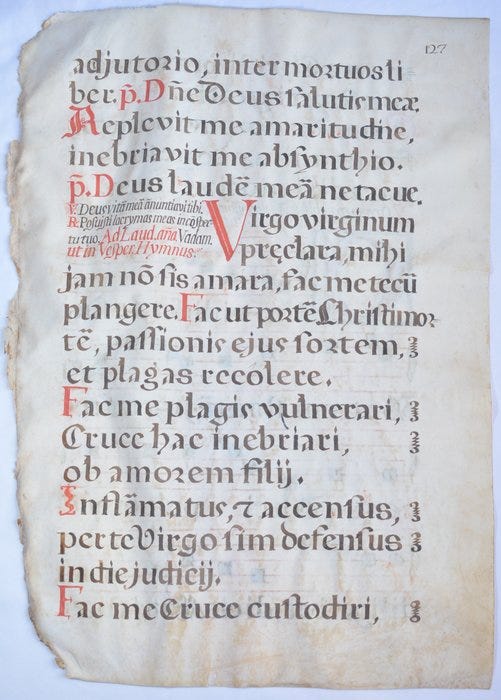 127
adjutorio, inter mortuos li
ber. p̃. Dñe Deus salutis meæ.
Replevit me amaritudine,
inebriavit me absynthio.
p̃. Deus laudẽ meã ne tacue.
℣. Deus vitã meã añuntiavi tibi.
℟. Posuisti lacrymas meas in cõspec
tu tuo. Ad Laud. aña. Vadam.
ut in Vesper. Hymnus.
Virgo virginum
præclara, mihi
jam nõ sis amara, fac me tecũ
plangere. Fac ut portẽ Christi mor
tẽ, passionis ejus sortem,
et plagas recolere.
Fac me plagis vulnerari,
Cruce hac inebriari,
ob amorem filij.
Inflãmatus, & accensus,
per te Virgo sim defensus
in die judicij.
Fac me Cruce custodiri,